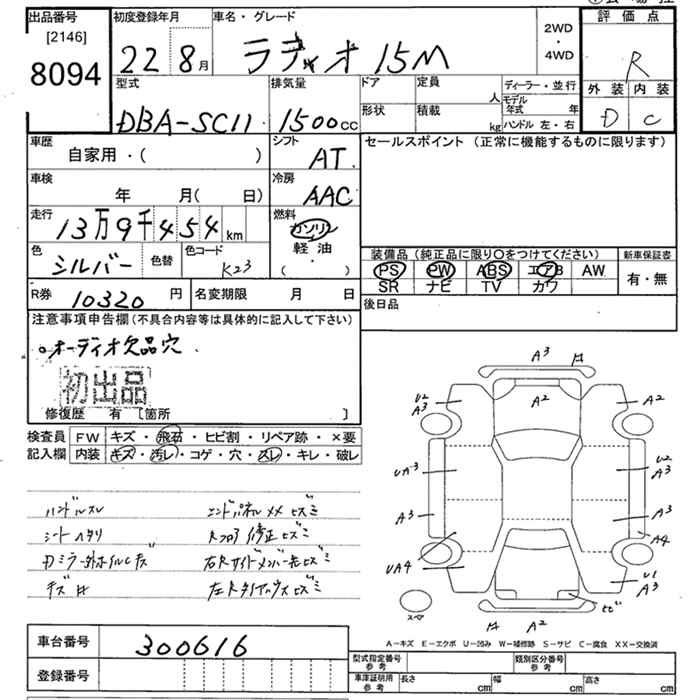 出品番号
[2146]
8094
初度登録年月
22 8月
車名・グレード
ラフィオ 15M
2WD
・
4WD
評価点
R
外装 内装
D C
型式
DBA-SC11
排気量
1500cc
ドア
形状
定員
人
積載
kg
ディーラー・並行
モデル年式 年
ハンドル 左・右
車歴
自家用・( )
シフト
AT
セールスポイント (正常に機能するものに限ります)
車検
年 月( 日)
冷房
AAC
走行
13万9千454km
燃料
ガソリン
軽油
・
( )
色
シルバー
色替
色コード
K23
装備品 (純正品に限り○をつけてください)
PS PW ABS エアB AW
SR ナビ TV カワ
新車保証書
有・無
R券
10320円
名変期限 月 日
後日品
注意事項申告欄 (不具合内容等は具体的に記入して下さい)
オーディオ欠品穴.
初出品
修復歴 有 [箇所 ]
検査員記入欄
FW キズ・飛石・ヒビ割・リペア跡・×要
内装 キズ・汚レ・コゲ・穴・スレ・キレ・破レ
ハンドルスレ エンドパネルメメ ヒズミ
シートヘタリ Rフロア修正ヒズミ
左Rタイヤハウスヒズミ
A3
A2
U2
A3
A2
UA3
U2
A3
A3
A3
A4
UA4
U1
A3
スペア
ヒビ
A2
A-キズ E-エクボ U-凹み W-補修跡 S-サビ C-腐食 XX-交換済
車台番号
300616
登録番号
型式指定番号
参考
類別区分番号
参考
車庫証明用
参考
長さ cm
幅 cm
高さ cm